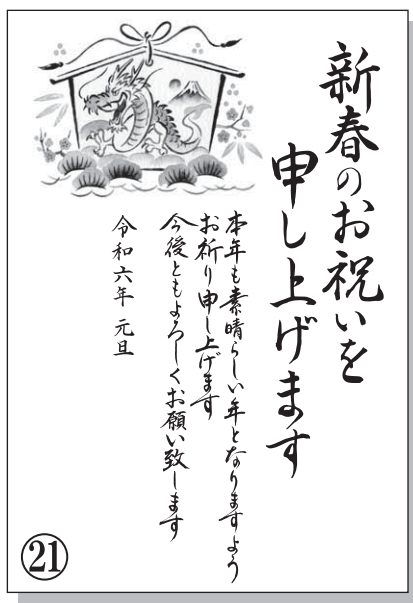 新春のお祝いを
申し上げます
本年も素晴らしい年となりますよう
お祈り申し上げます
今後ともよろしくお願い致します
令和六年 元旦
㉑